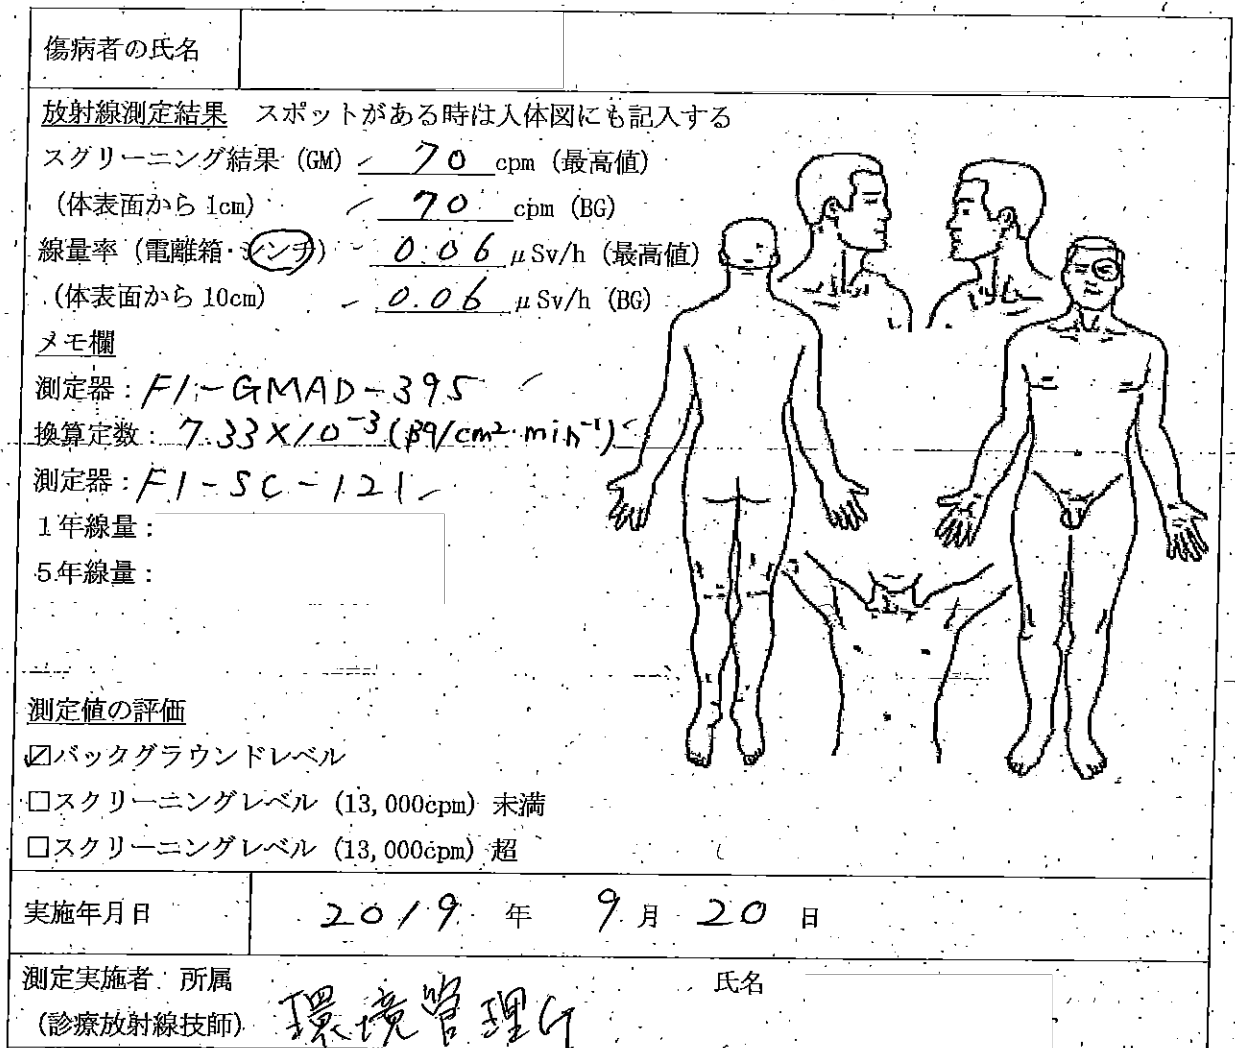 傷病者の氏名
放射線測定結果 スポットがある時は人体図にも記入する
スクリーニング結果 (GM) 70 cpm (最高値)
(体表面から 1cm) 70 cpm (BG)
線量率 (電離箱・シンチ) 0.06 μSv/h (最高値)
(体表面から 10cm) 0.06 μSv/h (BG)
メモ欄
測定器：F1-GMAD-395
換算定数：7.33×10⁻³(Bq/cm²・min⁻¹)
測定器：F1-SC-121
1年線量：
5年線量：
測定値の評価
☑バックグラウンドレベル
□スクリーニングレベル (13,000cpm) 未満
□スクリーニングレベル (13,000cpm) 超
実施年月日 2019 年 9 月 20 日
測定実施者 所属 環境管理G 氏名
(診療放射線技師)